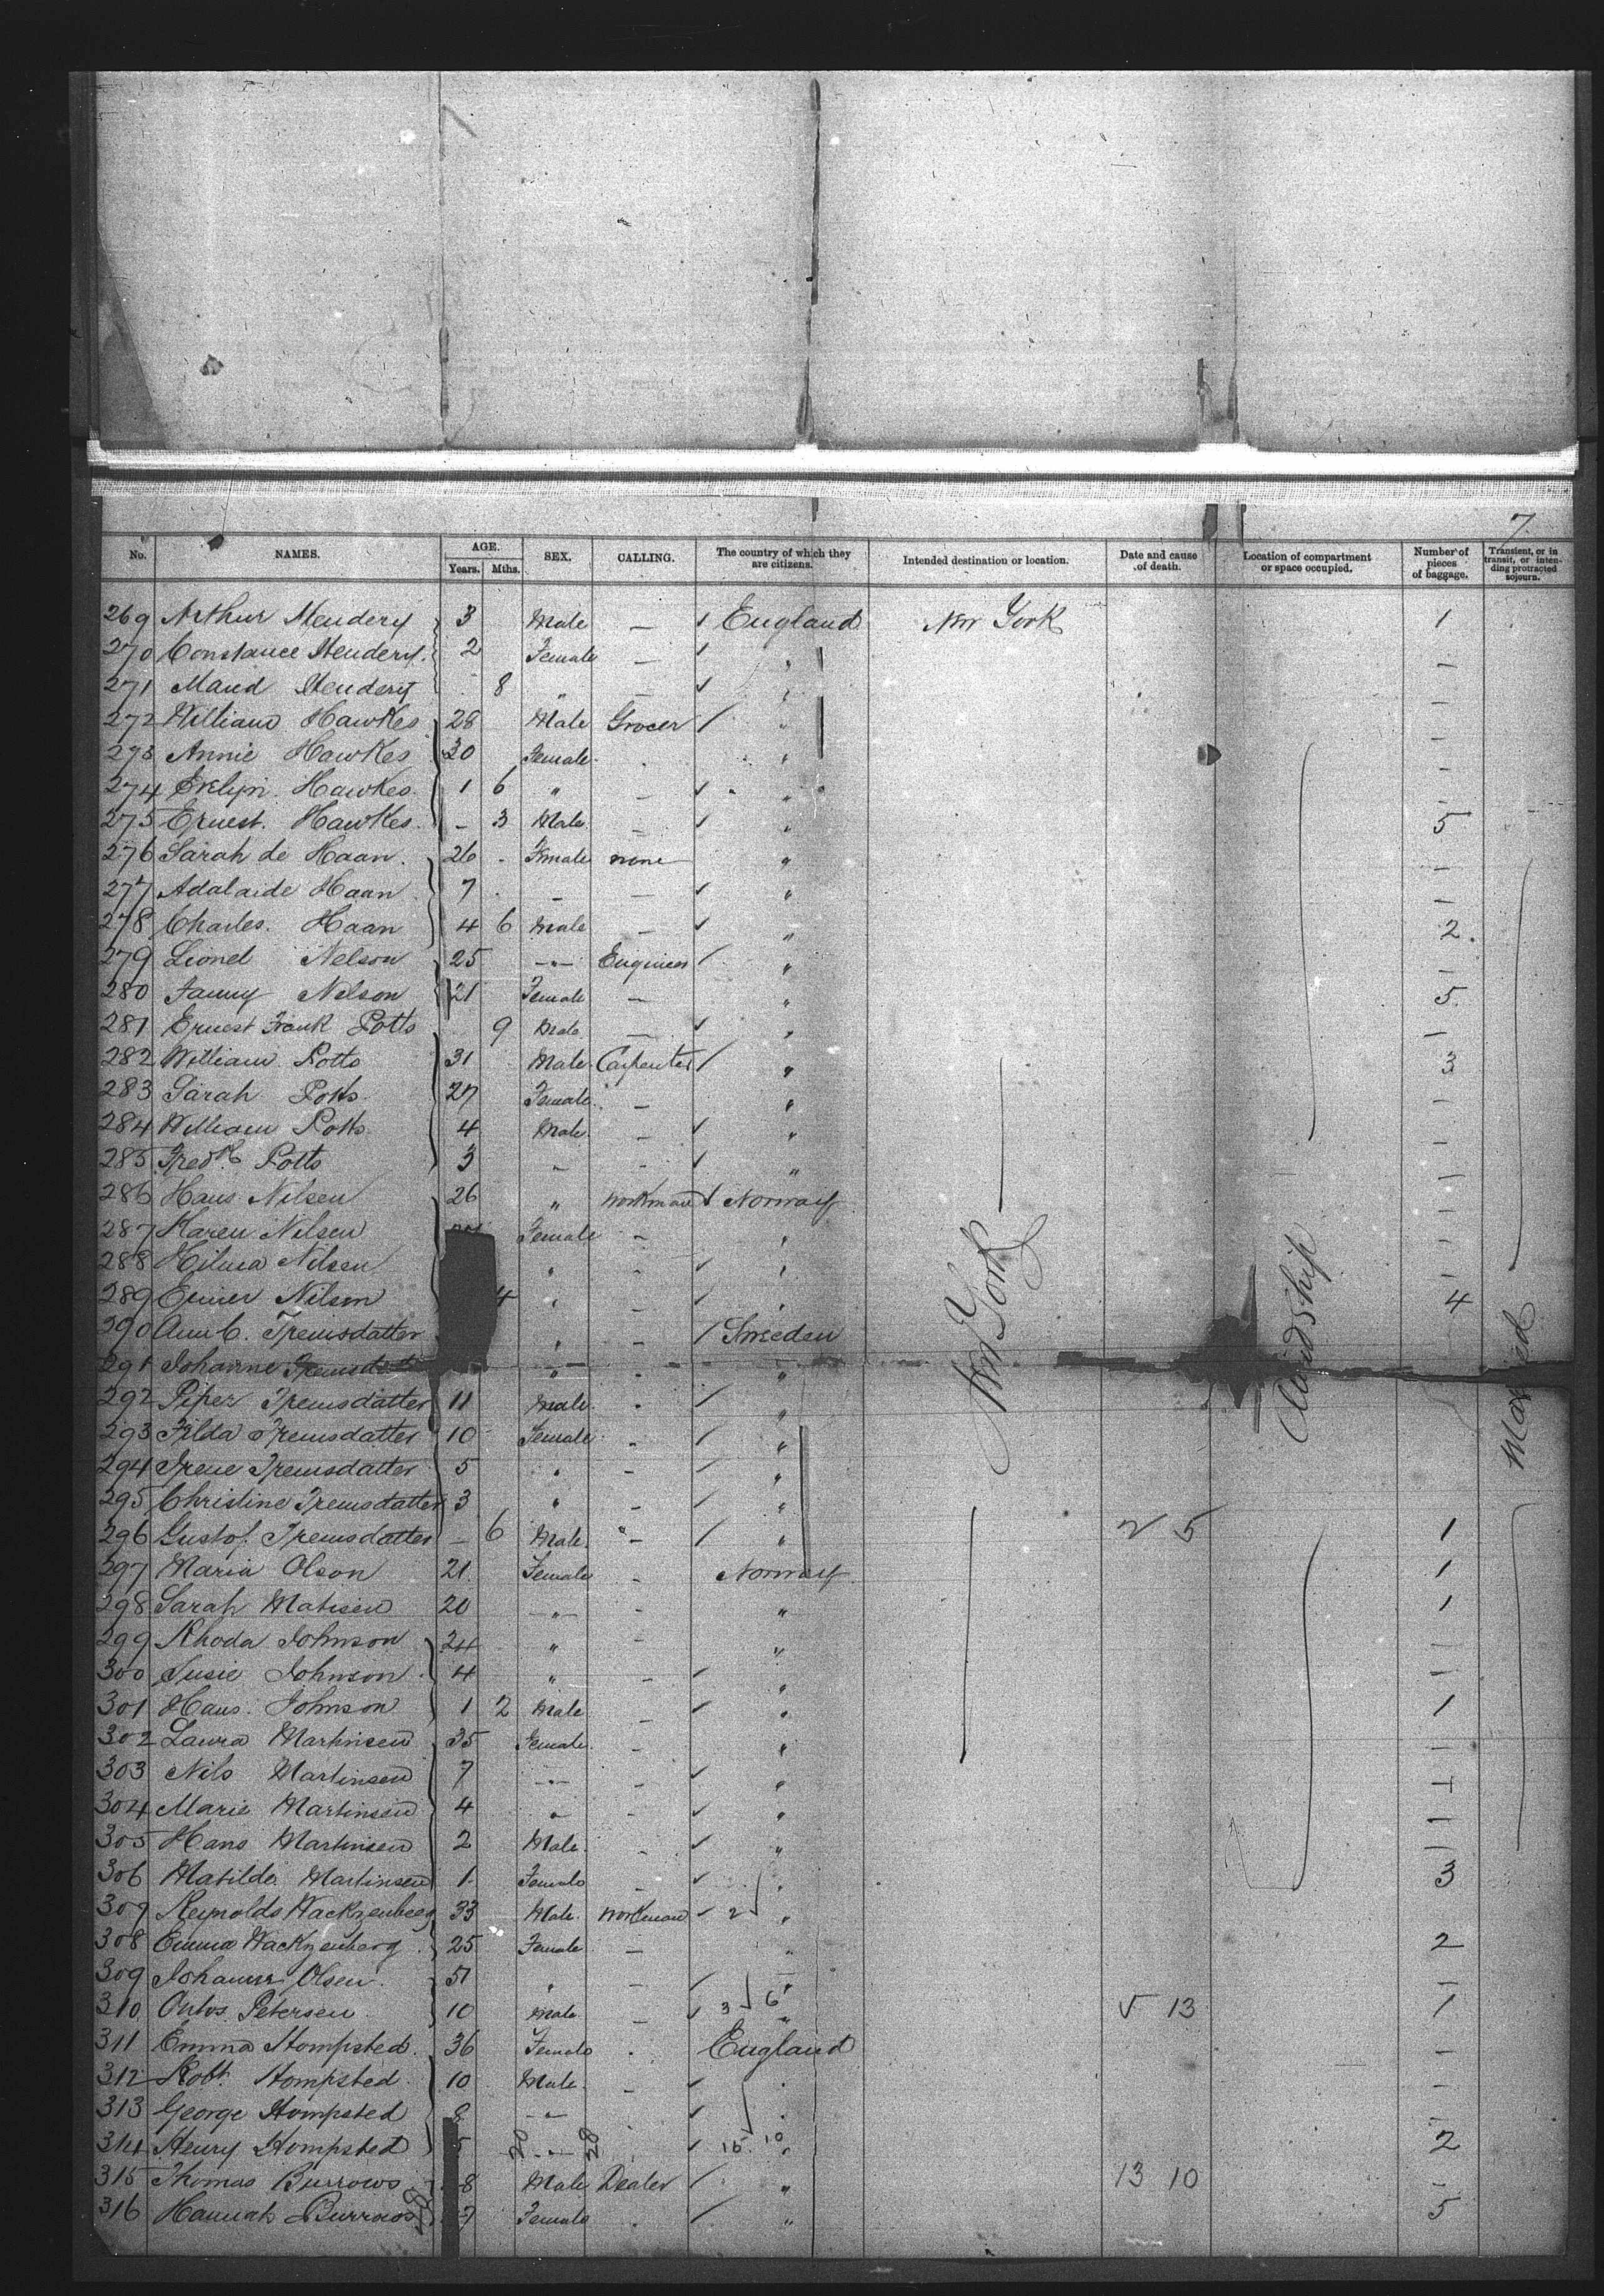 7
No. NAMES. AGE. Years. Mths. SEX. CALLING. The country of which they are citizens. Intended destination or location. Date and cause of death. Location of compartment or space occupied. Number of pieces of baggage. Transient, or in transit, or intending protracted sojourn.
269 Arthur Hendery 3 Male — ✓ England New York 1
270 Constance Hendery. 2 Female — ✓ " —
271 Maud Hendery 8 " — ✓ " —
272 William Hawkes 28 Male Grocer / " —
273 Annie Hawkes 30 Female " —
274 Evelyn Hawkes 1 6 " — ✓ " —
275 Ernest. Hawkes. — 3 Male — ✓ " 5
276 Sarah de Haan. 26 - Female none " —
277 Adalaide Haan 7 — — ✓ " —
278 Charles. Haan 4 6 Male — ✓ " 2.
279 Lionel Nelson 25 —"— Engineer / " —
280 Fanny Nelson 21 Female — " 5
281 Ernest Frank Potts 9 Male — ✓ " —
282 William Potts 31 Male Carpenter / " 3
283 Sarah Potts 27 Female — " —
284 William Potts 4 Male — ✓ " —
285 Fredk Potts 3 " - ✓ " —
286 Hans Nilsen 26 " Workman / Norway —
287 Karen Nilsen Female — " —
288 Hilma Nilsen " - ✓ " —
289 Nilsen 4 " - / " 4
290 Tremsdatter " — / Sweeden
291 Johanne " - "
292 Piper Tremsdatter 11 Male - / "
293 Tremsdatter 10 Female - / "
294 Irene Tremsdatter 5 " - / "
295 Christine Tremsdatter 3 " - / "
296 Gustof. Tremsdatter — 6 Male. — / " 2 5 1
297 Maria Olson 21 Female - Norway 1
298 Sarah Matisen 20 —"— - " 1
299 Rhoda Johnson 24 " - " —
300 Susie Johnson 4 " — / " —
301 Hans. Johnson 1 2 Male — / " 1
302 Laura Martinsen 35 Female. - " —
303 Nils Martinsen 7 —"— - ✓ "
304 Marie Martinsen 4 " - ✓ " —
305 Hans Martinsen 2 Male. - ✓ " —
306 Matilde Martinsen 1 Female - ✓ " 3
307 Reynolds Wackzenberg 33 Male. Workman ✓ 2 "
308 Emma Wackzenberg 25 Female — " 2
309 Olsen. 51 " — / " —
310 Petersen 10 Male — ✓ 3 6 " 5 13 1
311 Emma Hompsted. 36 Female . England —
312 Robt. Hompsted 10 Male. — ✓ " —
313 George Hompsted 8 —"— ✓ " —
314 Henry Hompsted 5 —"— ✓ 15 10 " 2
20 28
315 Thomas Burrows 8 Male Dealer / " 13 10 —
316 Hannah Burrows 7 Female . / " 5
New York
Midship